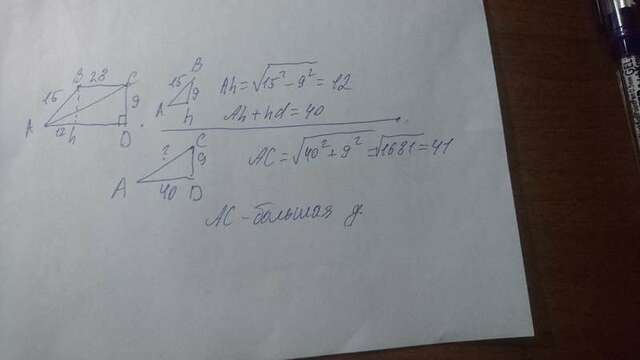 A 15 B 28 C
12 h D 9
A 15 B
h 9
Ah = √15² - 9² = 12
Ah + hd = 40
A ? C
40 D 9
AC = √40² + 9² = √1681 = 41
AC - большая д.
GEL